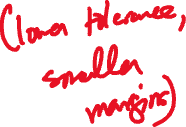 (lower tolerance,
smaller
margins)